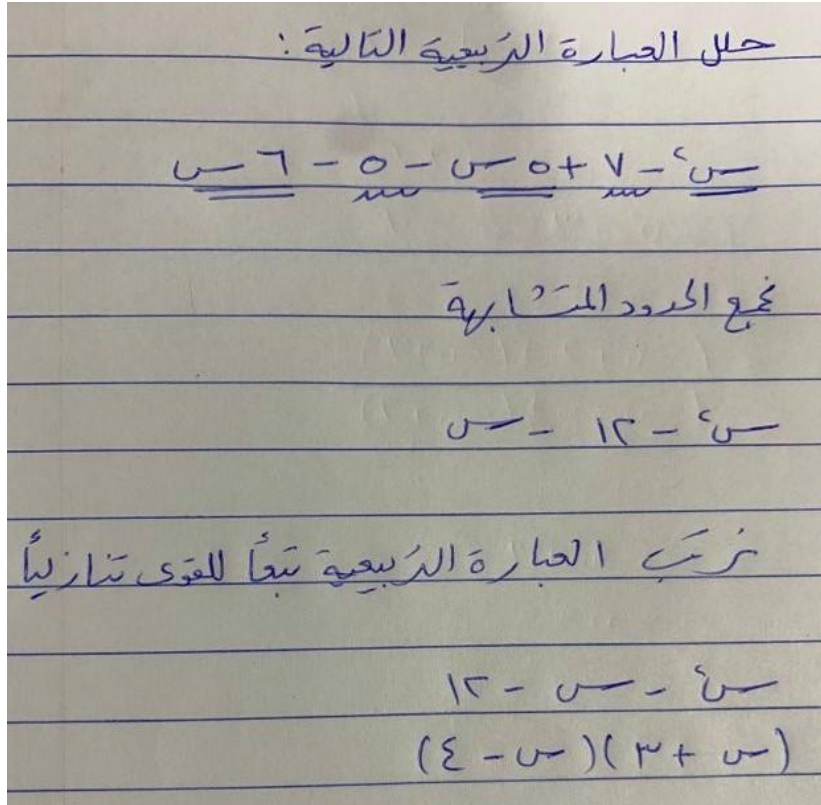 حلل العبارة التربيعية التالية:
س² - ٧ + ٥ س - ٥ - ٦ س
نجمع الحدود المتشابهة
س² - ١٢ - س
نرتب العبارة التربيعية تبعاً للقوى تنازلياً
س² - س - ١٢
(س + ٣)(س - ٤)